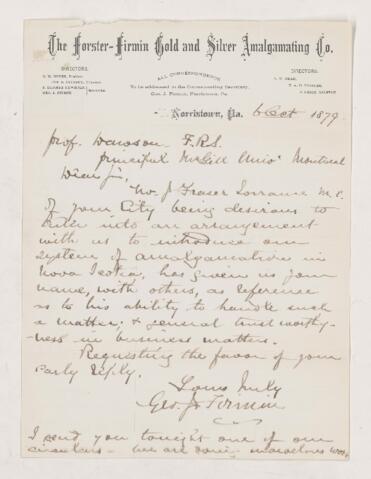 The Forster-Firmin Gold and Silver Amalgamating Co.
DIRECTORS:
DIRECTORS:
ALL CORRESPONDENCE
To be addressed to the Corresponding Secretary,
Geo. J. Firmin, Norristown, Pa.
Norristown, Pa. 6 Oct 1879
Prof. Dawson F.R.S.
principal McGill Univ. Montreal
Dear Sir,
Mr. J. Fraser Lorraine M.E.
of your City being desirous to
enter into an arrangement
with us to introduce our
system of amalgamation in
Nova Scotia, has given us your
name, with others, as reference
as to his ability to handle such
a matter, & general trustworthy-
ness in business matters.
Requesting the favor of your
early reply.
Yours truly
Geo. J. Firmin
I send you tonight one of our
circulars - We are doing marvelous